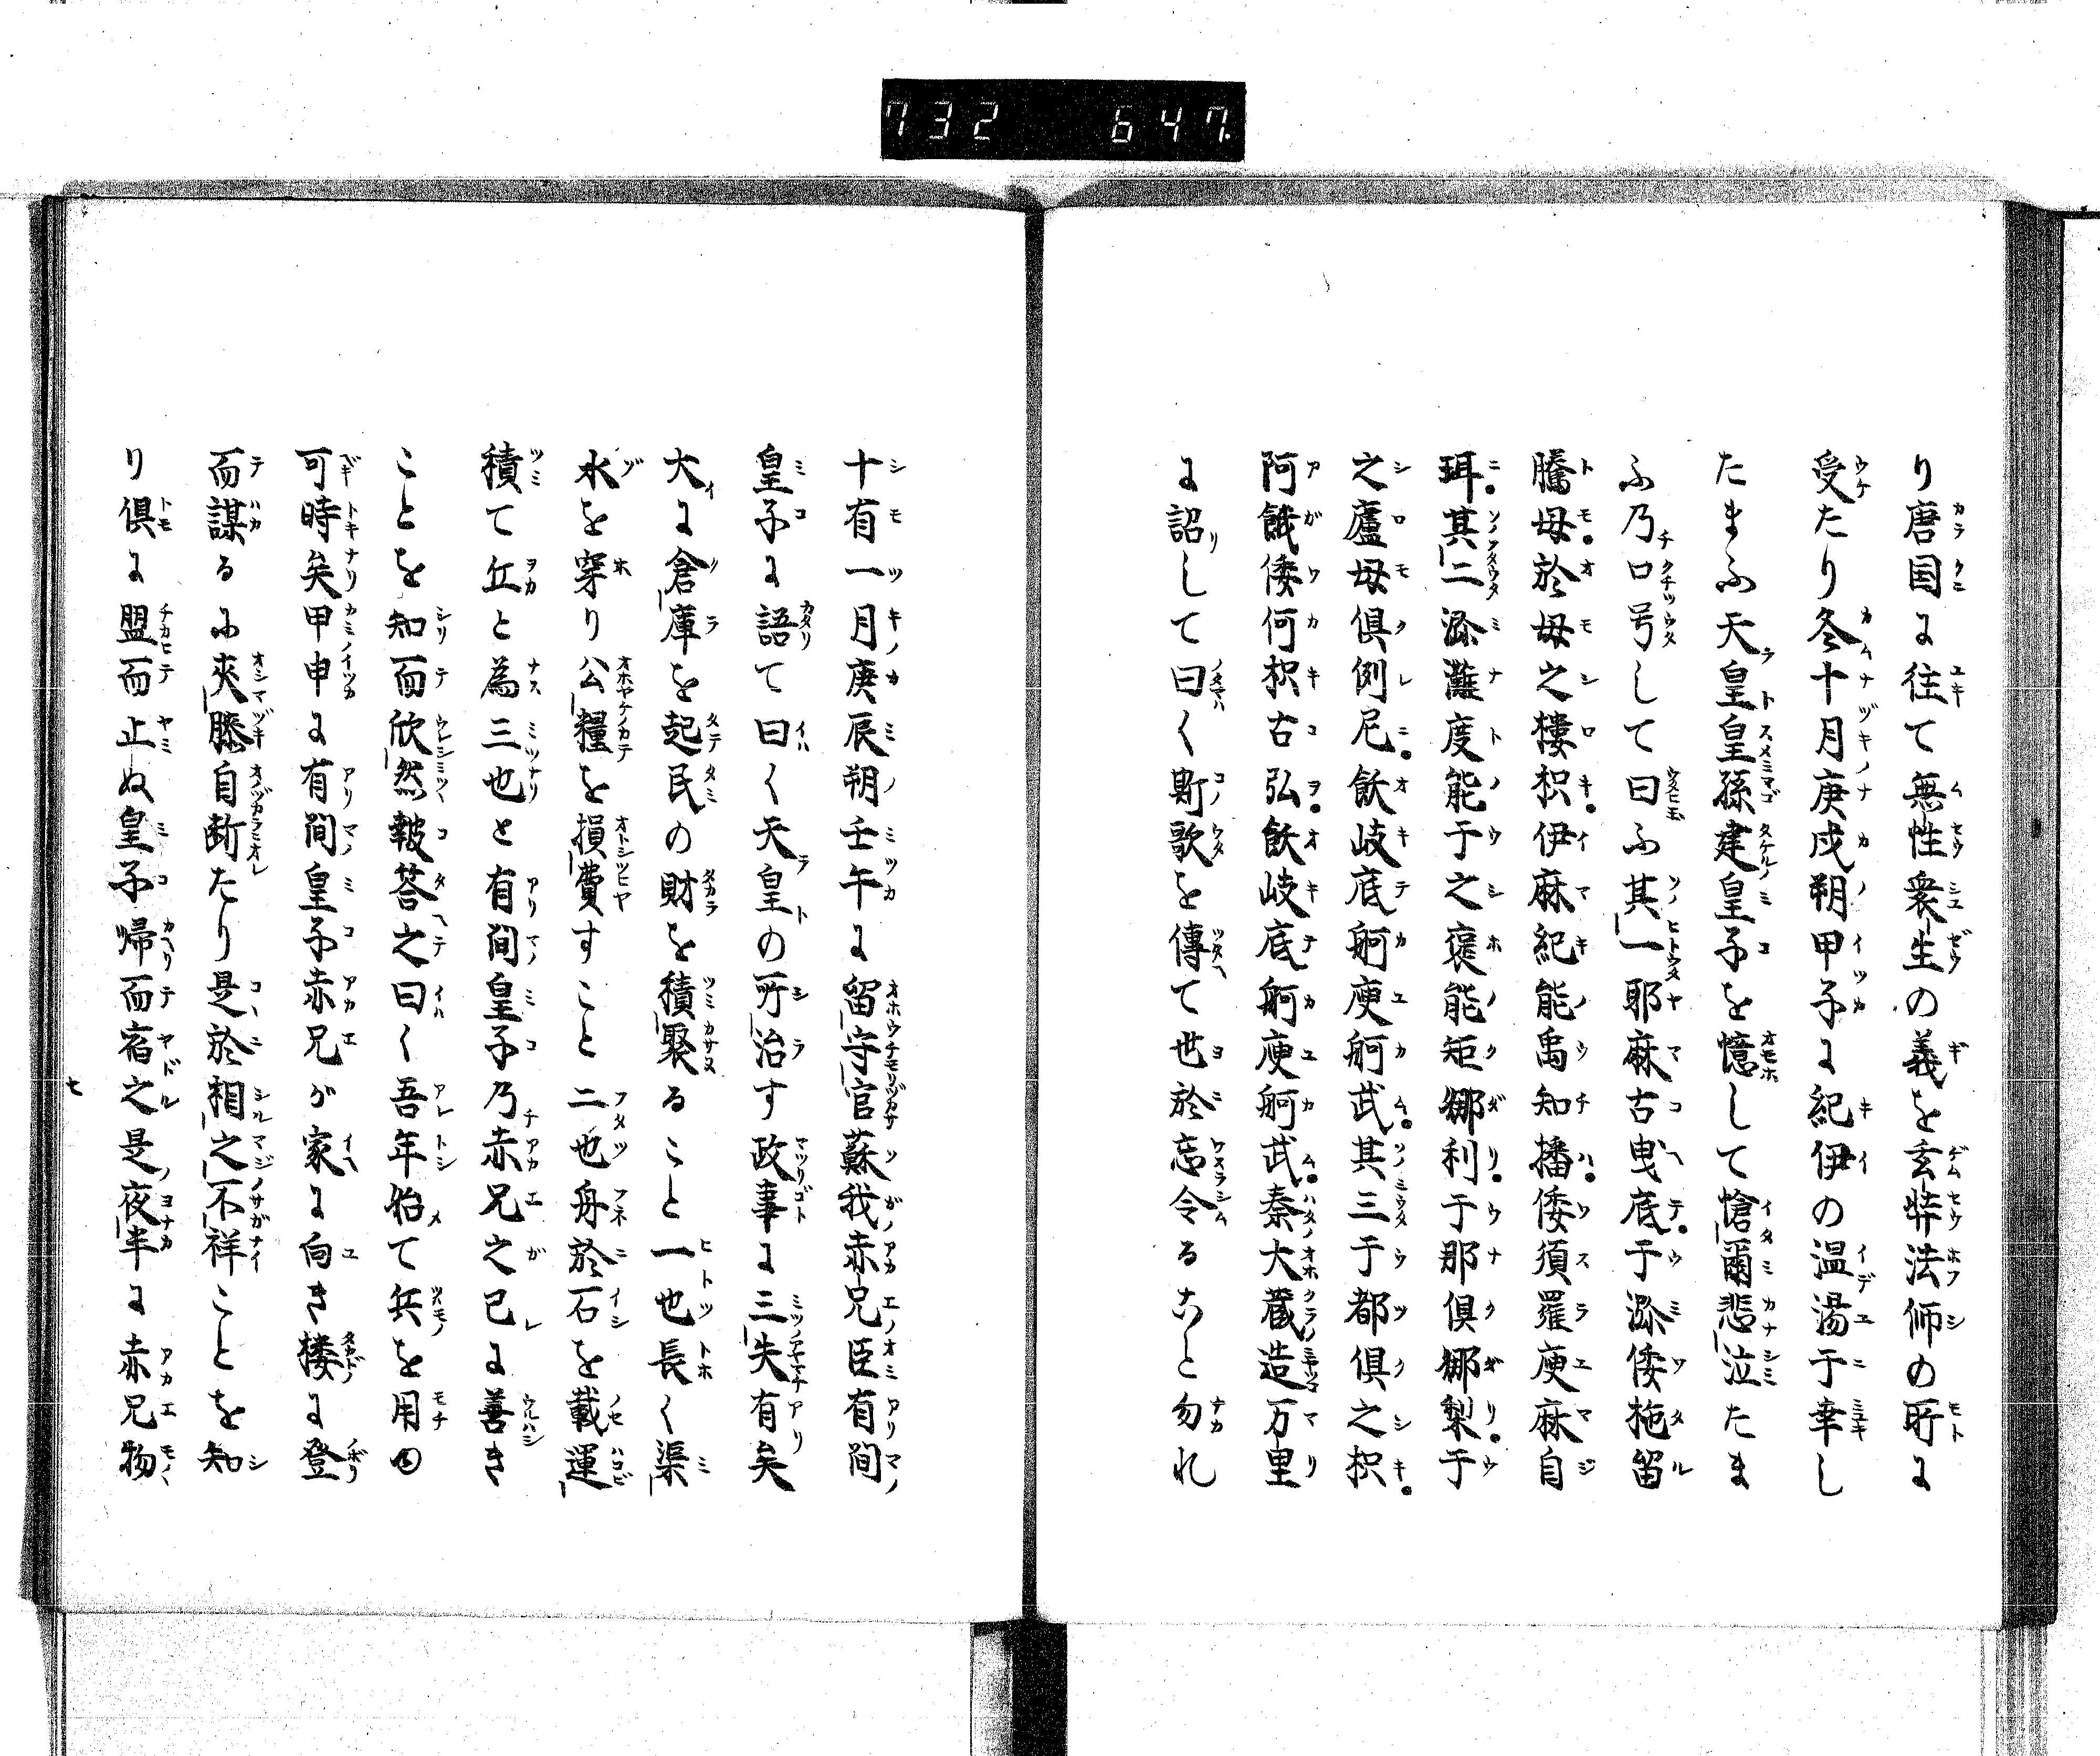 732 647.
り唐国に往て無性衆生の義を玄弉法師の所に
受たり冬十月庚戌朔甲子に紀伊の温湯于幸し
たまふ天皇皇孫建皇子を憶して愴爾悲泣たま
ふ乃口号して曰ふ其一耶麻古曳底于瀰倭拖留
騰母於母之樓枳伊麻紀能禹知播倭須羅庾麻自
珥其二瀰灘度能于之褒能矩娜利于那倶娜梨于
之廬母倶例尼飫岐底舸庾舸武其三于都倶之枳
阿餓倭何枳古弘飫岐底舸庾舸武秦大蔵造万里
に詔して曰く斯歌を傳て世於忘令ること勿れ
十有一月庚辰朔壬午に留守官蘇我赤兄臣有間
皇子に語て曰く天皇の所治す政事に三失有矣
大に倉庫を起民の財を積聚ること一也長く渠
水を穿り公糧を損費すこと二也舟於石を載運
積て丘と為三也と有間皇子乃赤兄之己に善き
ことを知而欣然報答之曰く吾年始て兵を用ゆ
可時矣甲申に有間皇子赤兄が家に向き楼に登
而謀るに夾膝自断たり是於相之不祥ことを知
り倶に盟而止ぬ皇子帰而宿之是夜半に赤兄物
七